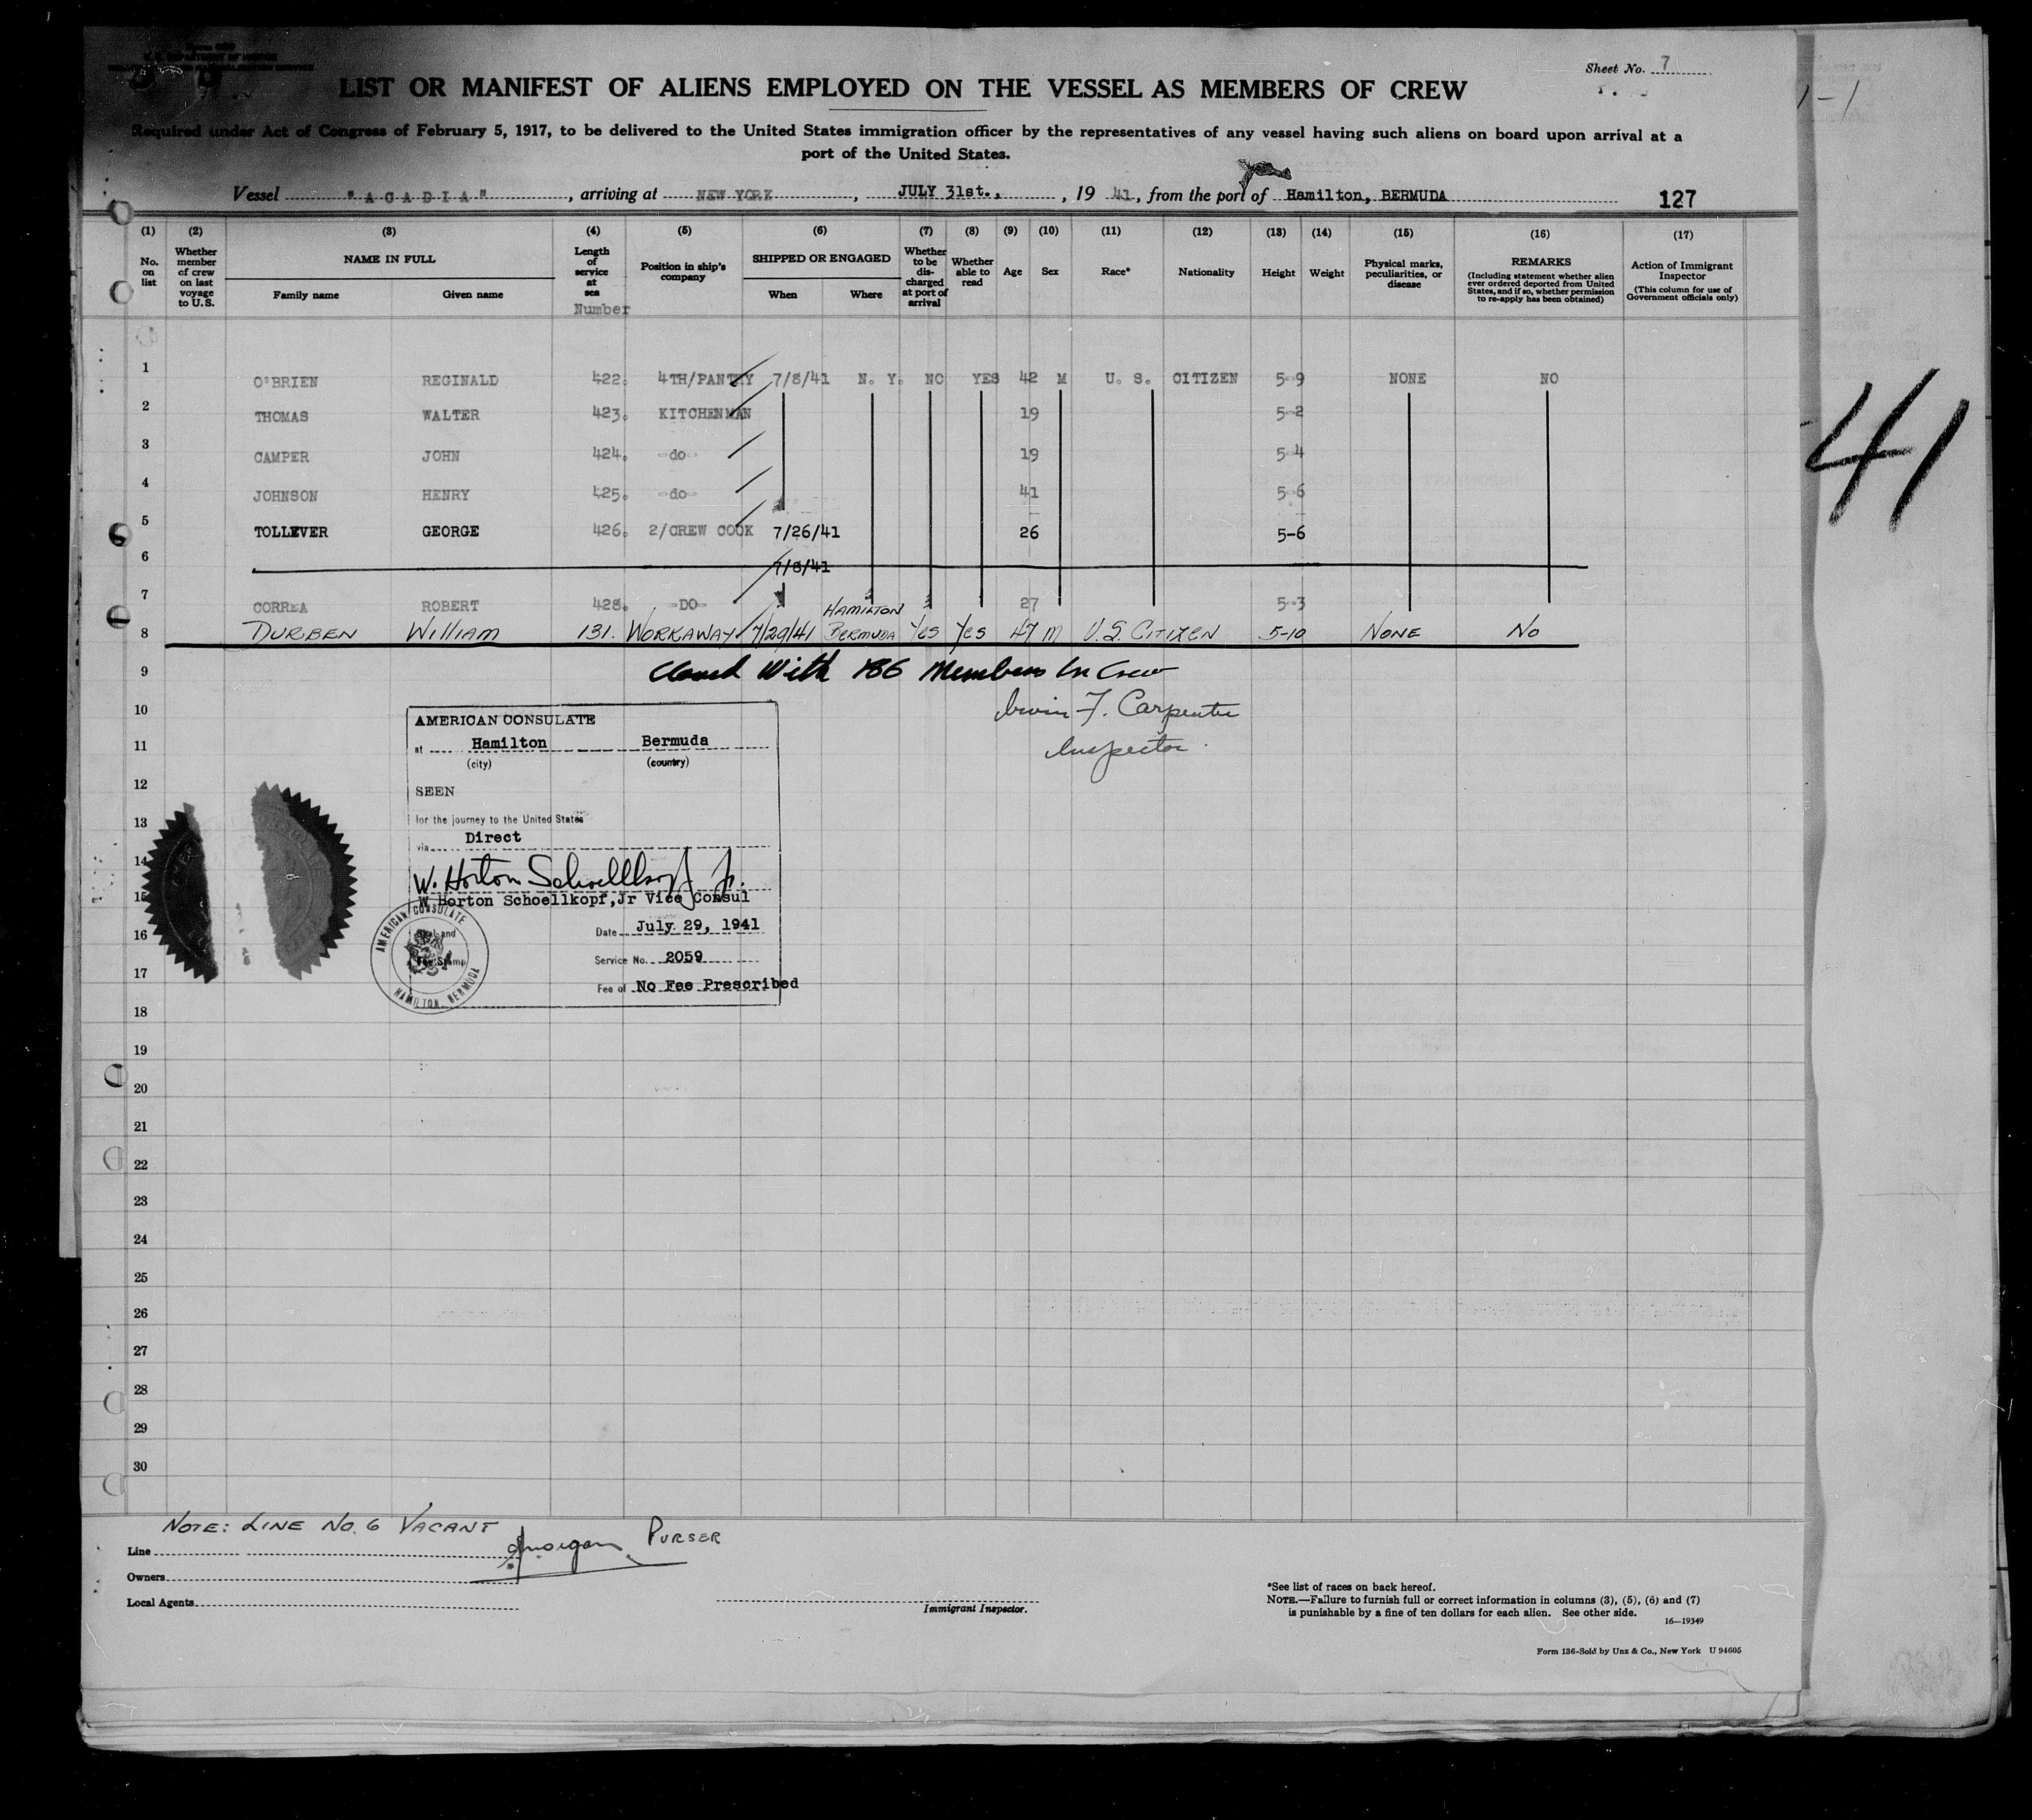 Sheet No. 7
LIST OR MANIFEST OF ALIENS EMPLOYED ON THE VESSEL AS MEMBERS OF CREW
Required under Act of Congress of February 5, 1917, to be delivered to the United States immigration officer by the representatives of any vessel having such aliens on board upon arrival at a
port of the United States.
Vessel "ACADIA", arriving at NEW YORK, JULY 31st., 19 41, from the port of Hamilton, BERMUDA 127
(1) (2) (3) (4) (5) (6) (7) (8) (9) (10) (11) (12) (13) (14) (15) (16) (17)
No. on list
Whether member of crew on last voyage to U.S.
NAME IN FULL
Family name Given name
Length of service at sea
Number
Position in ship's company
SHIPPED OR ENGAGED
When Where
Whether to be discharged at port of arrival
Whether able to read
Age
Sex
Race*
Nationality
Height
Weight
Physical marks, peculiarities, or disease
REMARKS
(Including statement whether alien ever ordered deported from United States, and if so, whether permission to re-apply has been obtained)
Action of Immigrant Inspector
(This column for use of Government officials only)
1 O'BRIEN REGINALD 422. 4TH/PANTRY 7/8/41 N. Y. NO YES 42 M U. S. CITIZEN 5-9 NONE NO
2 THOMAS WALTER 423. KITCHENMAN 19 5-2
3 CAMPER JOHN 424. -do- 19 5-4
4 JOHNSON HENRY 425. -do- 41 5-6
5 TOLLEVER GEORGE 426. 2/CREW COOK 7/26/41 26 5-6
6 7/8/41
7 CORREA ROBERT 428. -DO- 27 5-3
8 DURBEN WILLIAM 131. WORKAWAY 7/29/41 HAMILTON BERMUDA YES YES 47 M U.S. CITIZEN 5-10 NONE NO
9 Closed With 186 Members In Crew
10 Irwin F. Carpenter
11 Inspector
12
13
14
15
16
17
18
19
20
21
22
23
24
25
26
27
28
29
30
AMERICAN CONSULATE
at Hamilton Bermuda
(city) (country)
SEEN
for the journey to the United States
via Direct
W. Horton Schoellkopf Jr.
W Horton Schoellkopf,Jr Vice Consul
Date July 29, 1941
Service No. 2059
Fee of No Fee Prescribed
AMERICAN CONSULATE
Seal and
Fee Stamp
HAMILTON, BERMUDA
41
NOTE: LINE NO. 6 VACANT
Morgan PURSER
Line
Owners
Local Agents
Immigrant Inspector.
*See list of races on back hereof.
NOTE.—Failure to furnish full or correct information in columns (3), (5), (6) and (7)
is punishable by a fine of ten dollars for each alien. See other side.
16—19349
Form 136-Sold by Unz & Co., New York U 94605